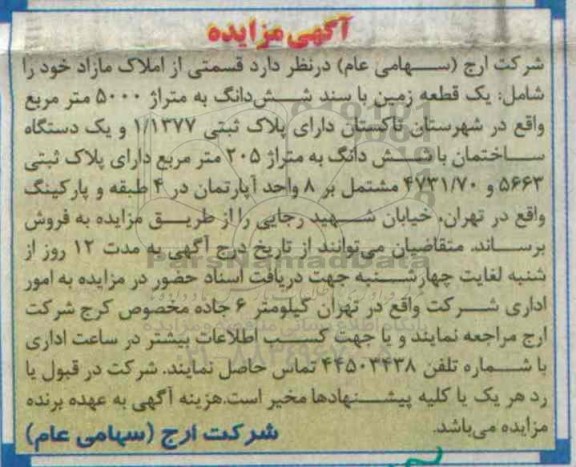 آگهی مزایده
شرکت ارج (سهامی عام) درنظر دارد قسمتی از املاک مازاد خود را
شامل: یک قطعه زمین با سند شش‌دانگ به متراژ ۵۰۰۰ متر مربع
واقع در شهرستان تاکستان دارای پلاک ثبتی ۱/۱۳۷۷ و یک دستگاه
ساختمان با شش دانگ به متراژ ۲۰۵ متر مربع دارای پلاک ثبتی
۵۶۶۳ و ۴۷۳۱/۷۰ مشتمل بر ۸ واحد آپارتمان در ۴ طبقه و پارکینگ
واقع در تهران، خیابان شهید رجایی را از طریق مزایده به فروش
برساند. متقاضیان می‌توانند از تاریخ درج آگهی به مدت ۱۲ روز از
شنبه لغایت چهارشنبه جهت دریافت اسناد حضور در مزایده به امور
اداری شرکت واقع در تهران کیلومتر ۶ جاده مخصوص کرج شرکت
ارج مراجعه نمایند و یا جهت کسب اطلاعات بیشتر در ساعت اداری
با شماره تلفن ۴۴۵۰۳۴۳۸ تماس حاصل نمایند. شرکت در قبول یا
رد هر یک یا کلیه پیشنهادها مخیر است.هزینه آگهی به عهده برنده
مزایده می‌باشد.
شرکت ارج (سهامی عام)
ParsNamadData